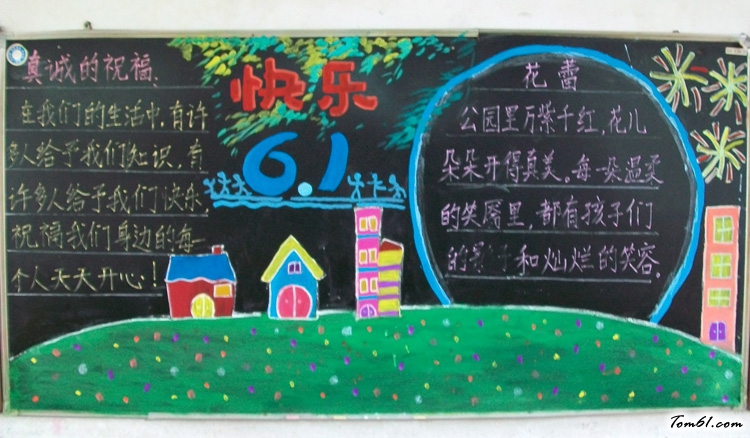 真诚的祝福
在我们的生活中,有许
多人给予我们知识,有
许多人给予我们快乐
祝福我们身边的每一
个人天天开心!
快乐
6.1
花蕾
公园里万紫千红,花儿
朵朵开得真美。每一朵温柔
的笑厣里,都有孩子们
的影子和灿烂的笑容.
Tom61.com